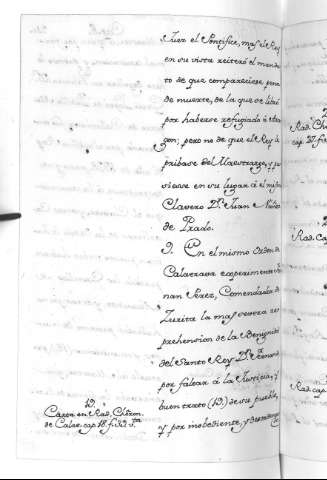 Juez el Pontifice, mas el Rey
en su vista reiteró el manda
to de que compareciese pena
de muerte, de la que se libró
por haberse refugiado á
gon; pero no de que el Rey le
pribase del Maestrazgo, y pu
siese en su lugar á el mismo
Clavero Dn. Juan Nuñez
de Prado.
9. En el mismo Orden de
Calatrava experimentó
nan Perez, Comendador de
Zurita la mas severa re
prehension de la Benignidad
del Santo Rey Dn. Fernando
por faltar á la Justicia, y
buen trato (19) de su pueblo,
y por inobediente, y
19.
Caro en Rad. Chron.
de Calat. cap. 18. f. 32. vta
Rad. Ch
cap. 27. f.
Rad. Cap
Rad. cap